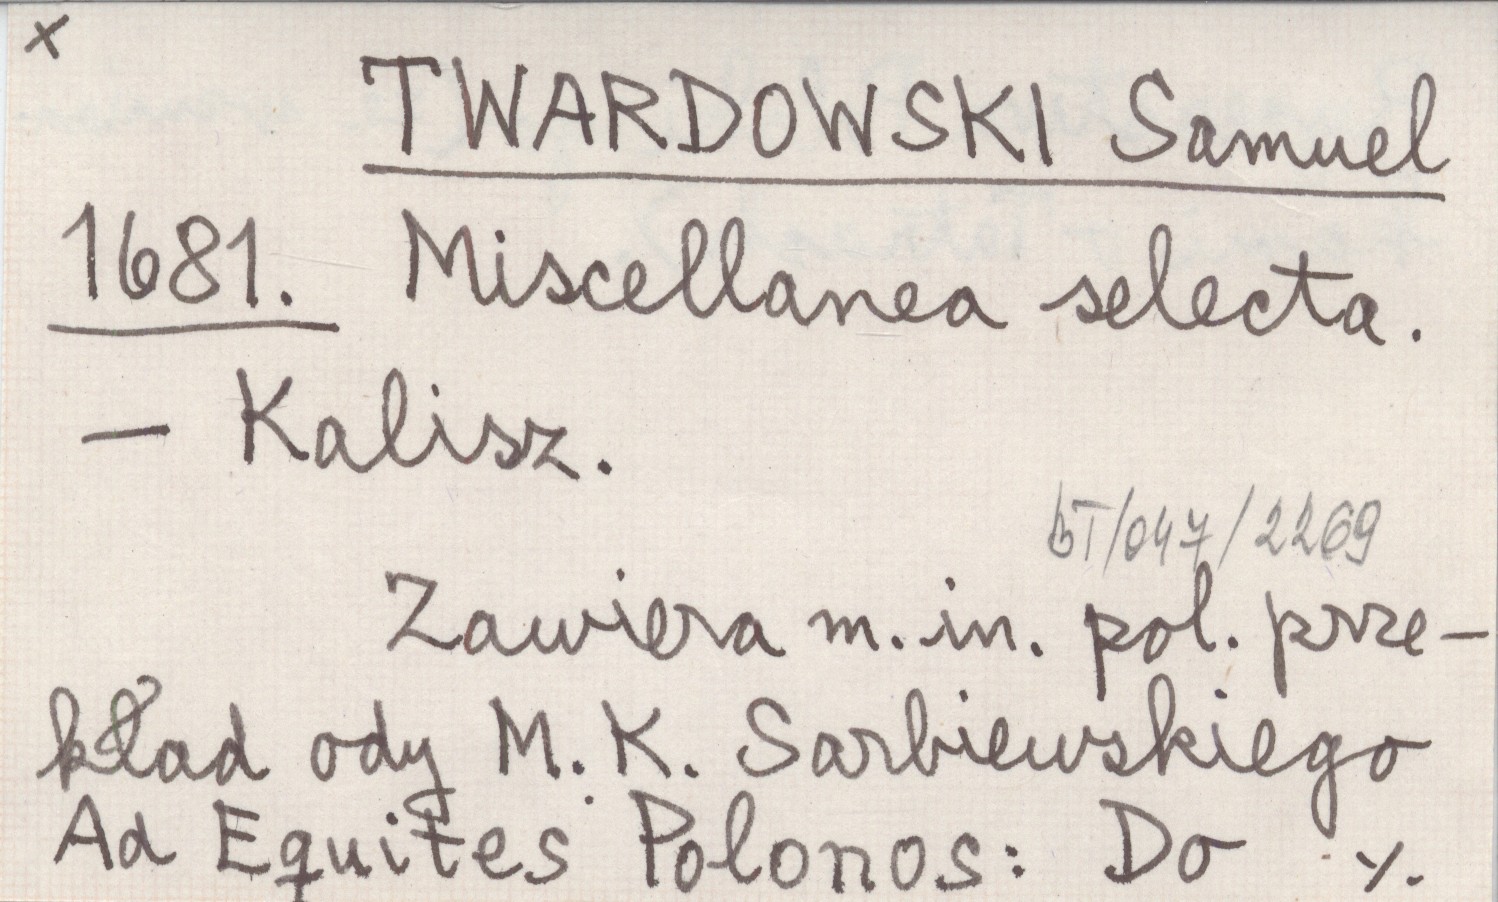 x
TWARDOWSKI Samuel
1681. Miscellanea selecta.
— Kalisz.
BT/047/2269
Zawiera m. in. pol. prze-
kład ody M. K. Sarbiewskiego
Ad Equites Polonos: Do ./.